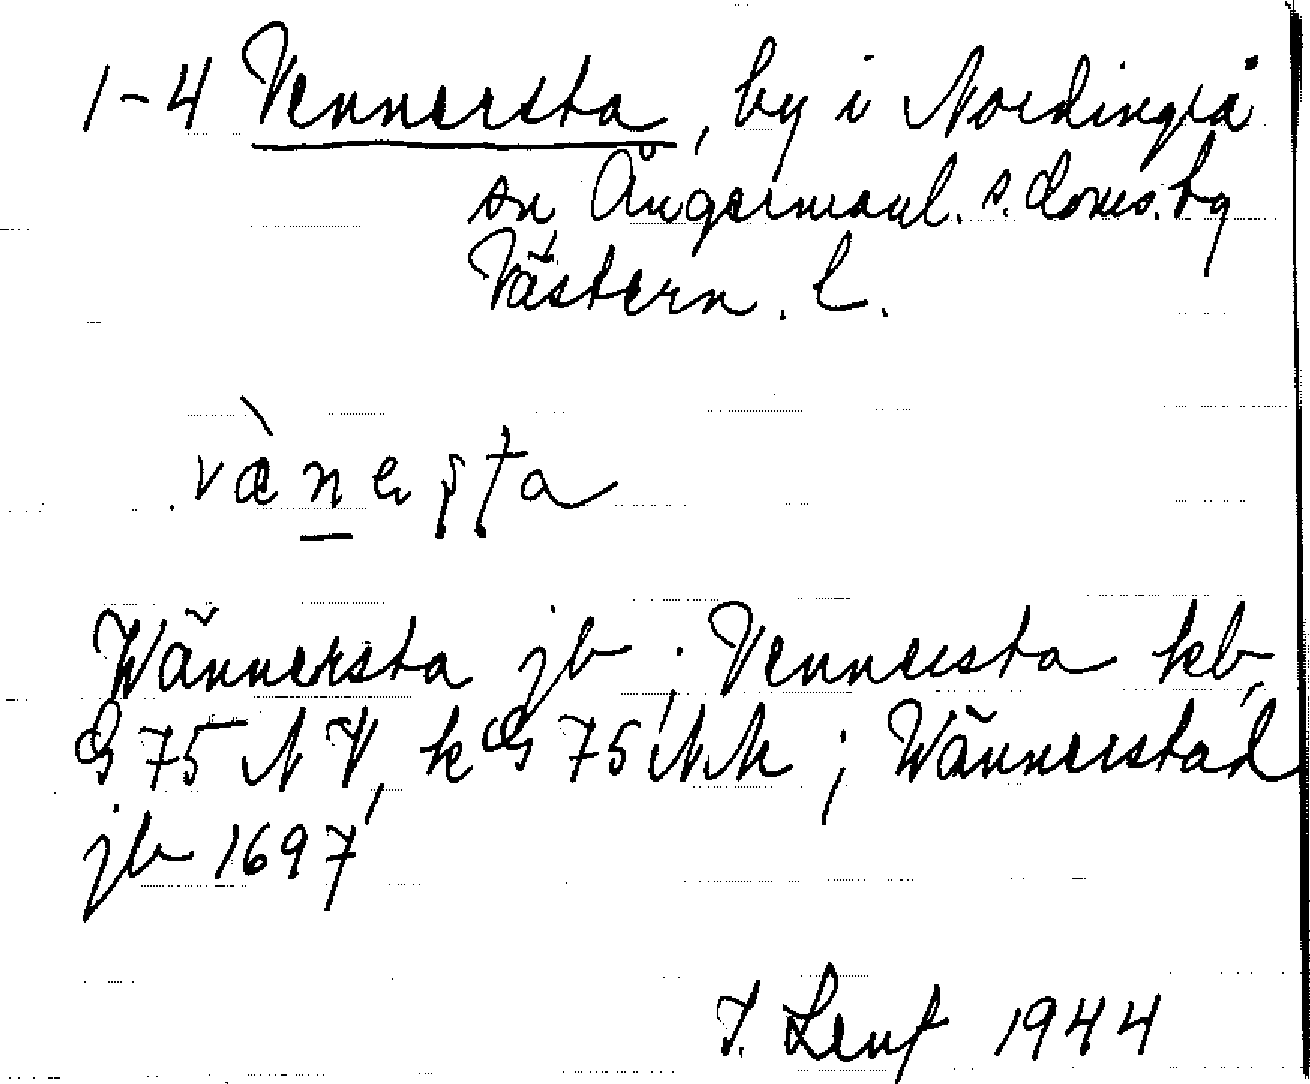 1-4 Vennersta, by i Nordingrå
sn Ångermanl. s. doms.
Västern. l.
Wännersta jb; Vennersta kb,
G 75 NV, kG 75 NM; Wännerstad
jb 1697
1944